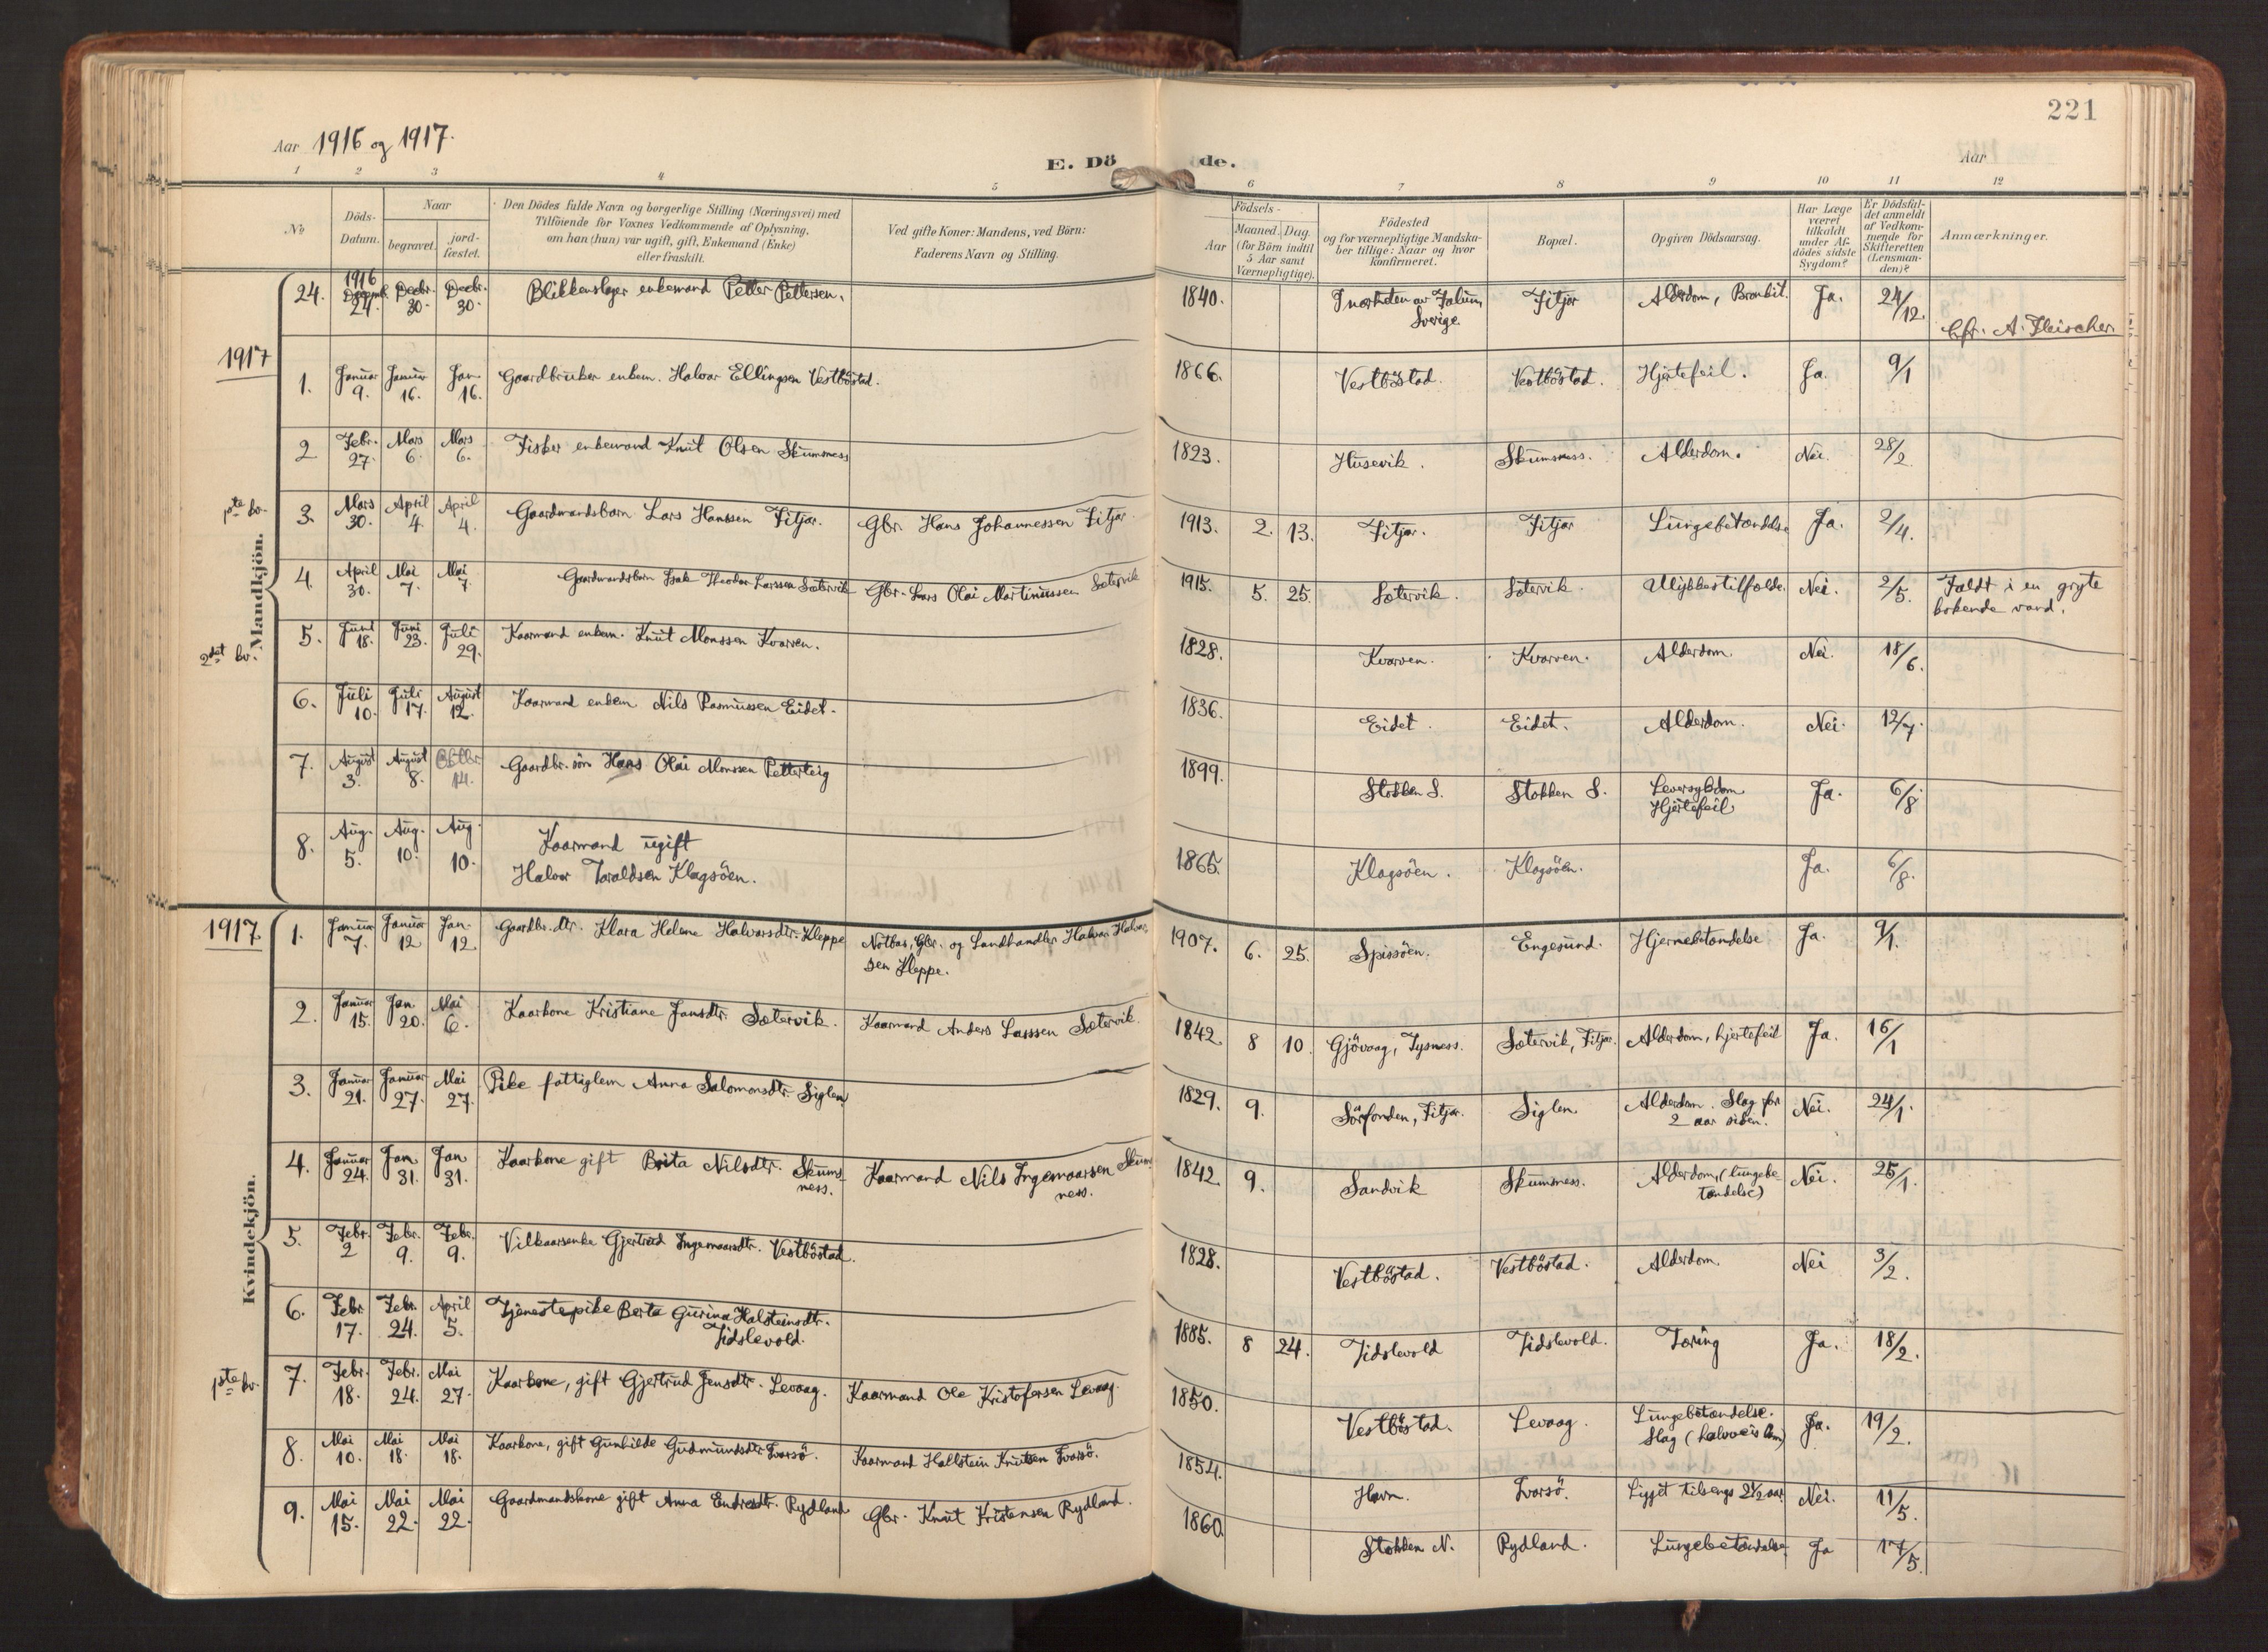 221
Aar 1916 og 1917.
E. Döde.
Aar
1 2 3 4 5 6 7 8 9 10 11 12
No
Döds-Datum.
Naar
begravet.
jord-fæstet.
Den Dödes fulde Navn og borgerlige Stilling (Næringsvei) med
Tilföiende for Voxnes Vedkommende af Oplysning,
om han (hun) var ugift, gift, Enkemand (Enke)
eller fraskilt.
Ved gifte Koner: Mandens, ved Börn:
Faderens Navn og Stilling.
Födsels-
Aar
Maaned. Dag.
(for Börn indtil
5 Aar samt
Værnepligtige).
Födested
og for værnepligtige Mandska-
ber tillige: Naar og hvor
konfirmeret.
Bopæl.
Opgiven Dödsaarsag.
Har Læge
været
tilkaldt
under Af-
dödes sidste
Sygdom?
Er Dödsfal-
det anmeldt
af Vedkom-
mende for
Skifteretten
(Lensman-
den)?
Anmærkninger.
Mandkjön.
24. 1916 Decemb. 24. Decbr. 30. Decbr. 30. Blikkenslager enkemand Petter Pettersen. 1840. I nærheten av Falun, Sverige. Fitjar Alderdom, Bronkit. Ja. 24/12. Cfr. A. Fleischer
1917
1. Januar 9. Januar 16. Jan. 16. Gaardbruker enkem. Halvor Ellingsen Vestböstad. 1866. Vestböstad. Vestböstad. Hjertefeil. Ja. 9/1
2 Febr. 27. Mars 6. Mars 6. Fisker enkemand Knut Olsen Skumsness 1823. Husevik. Skumsness. Alderdom. Nei. 28/2
1ste kv.
3. Mars 30. April 4. April 4. Gaardmandsbarn Lars Hanssen Fitjar. Gbr. Hans Johannessen Fitjar 1913. 2. 13. Fitjar. Fitjar Lungebetændelse Ja. 2/4.
4. April 30. Mai 7. Mai 7. Gaardmandsbarn Isak Theodor Larssen Sætervik Gbr. Lars Olai Martinussen Sætervik 1915. 5. 25. Sætervik. Sætervik. Ulykkestilfælde. Nei. 2/5. Faldt i en gryte kokende vand.
2det kv.
5. Juni 18. Juni 23. Juli 29. Kaarmand enkem. Knut Monssen Kvarven. 1828. Kvarven. Kvarven. Alderdom. Nei. 18/6.
6. Juli 10. Juli 17. August 12. Kaarmand enkem. Nils Rasmussen Eidet. 1836. Eidet. Eidet. Alderdom. Nei. 12/7.
7. August 3. August 8. Oktbr 14. Gaardbr. sön Hans Olai Monssen Petterteig 1899. Stokken S. Stokken S. Leversykdom Hjertefeil Ja. 6/8
8. Aug. 5. Aug. 10. Aug. 10. Kaarmand ugift
Halvor Taraldsen Klagsöen. 1865. Klagsöen. Klagsöen. Ja. 6/8.
1917
Kvindekjön.
1. Januar 7. Januar 12 Jan. 12. Gaardbr. dtr. Klara Helene Halvorsdtr. Kleppe Notbas, Gbr. og Landhandler Halvor Halvor-
sen Kleppe. 1907. 6. 25. Spissöen. Engesund. Hjernebetændelse Ja. 9/1.
2. Januar 15. Jan. 20. Mai 6. Kaarkone Kristiane Jansdtr. Sætervik. Kaarmand Anders Larssen Sætervik. 1842. 8 10. Gjövaag, Tysness. Sætervik, Fitjar. Alderdom, hjertefeil Ja. 16/1
3. Januar 21. Januar 27. Mai 27. Pike fattiglem Anna Salomonsdtr. Siglen 1829. 9. Sörfonden, Fitjar. Siglen. Alderdom. Slag for 2 aar siden. Nei. 24/1.
4. Januar 24. Jan 31. Jan 31. Kaarkone gift Brita Nilsdtr. Skums-
ness. Kaarmand Nils Ingemaarsen Skums-
ness. 1842. 9. Sandvik Skumsness. Alderdom, (lungebe-
tændelse) Nei. 25/1.
5. Febr. 2 Febr. 9. Febr. 9. Vilkaarsenke Gjertrud Ingemaarsdtr. Vestböstad. 1828. Vestböstad. Vestböstad. Alderdom. Nei 3/2.
6. Febr 17. Febr. 24. April 5. Tjenestepike Berta Gurina Halsteinsdtr.
Tidslevold. 1885. 8 24. Tidslevold Tidslevold. Tæring Ja. 18/2.
1ste kv.
7. Febr. 18. Febr. 24. Mai 27. Kaarkone, gift Gjertrud Jensdtr. Levaag. Kaarmand Ole Kristofersen Levaag. 1850. Vestböstad. Levaag. Lungebetændelse.
Slag (halvveis lam) Ja. 19/2.
8. Mai 10. Mai 18. Mai 18. Kaarkone, gift Gunhilde Gudmundsdtr. Ivarsö. Kaarmand Hallstein Knutsen Ivarsö. 1854. Havn. Ivarsö. Ligget tilsengs 2 1/2 aar Nei. 11/5.
9. Mai 15. Mai 22. Mai 22. Gaardmandskone gift Anna Endresdtr. Rydland Gbr. Knut Kristensen Rydland. 1860. Stokken N. Rydland. Lungebetændelse Ja 17/5.